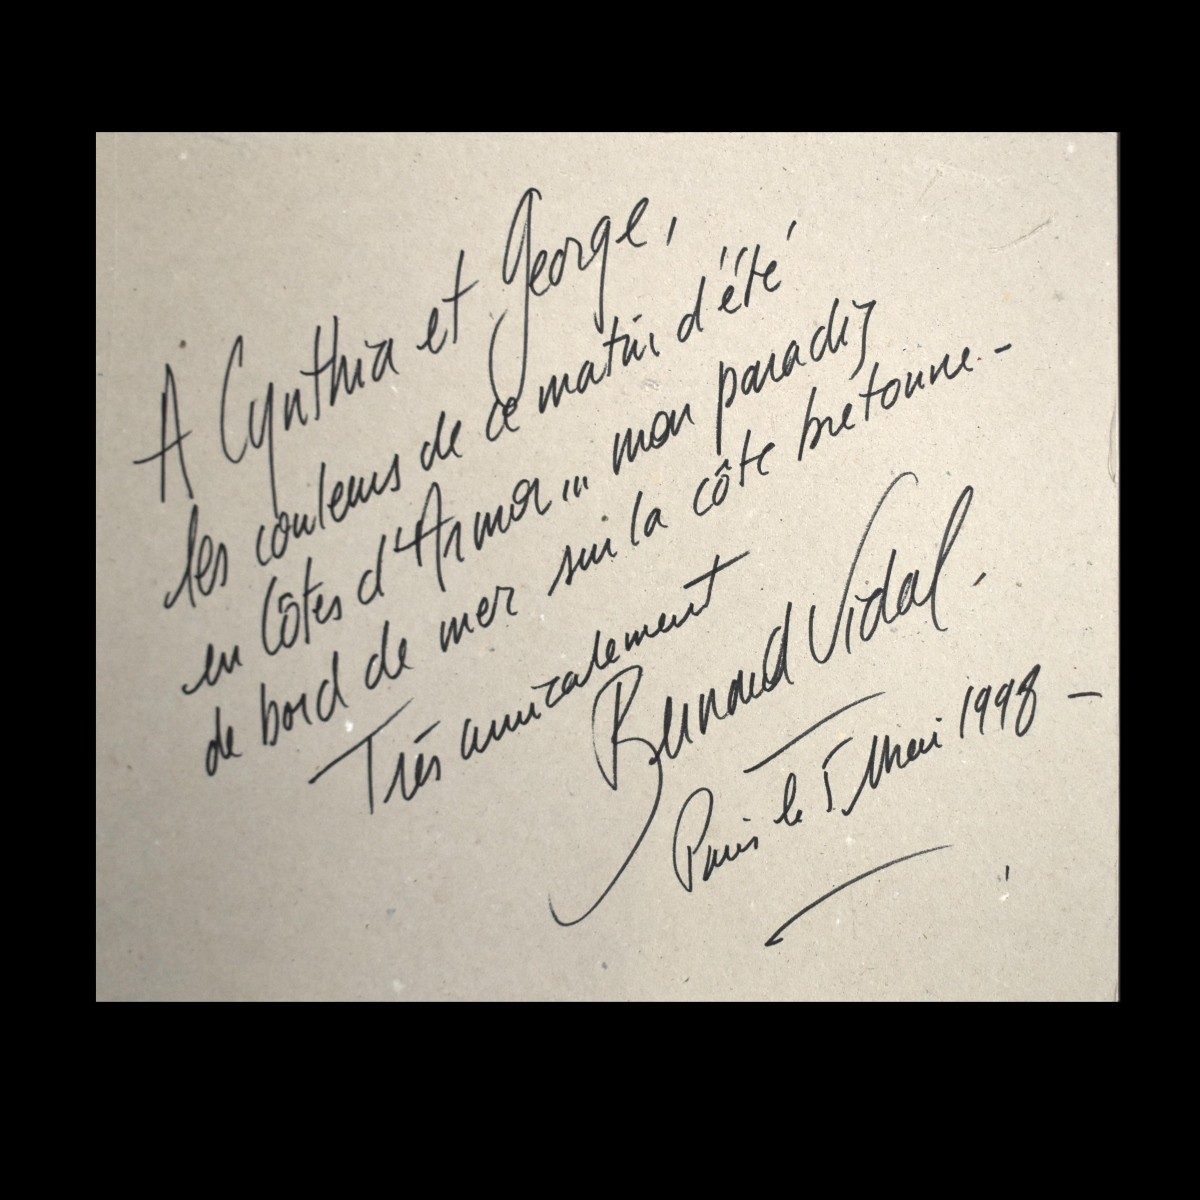 A Cynthia et George,
les couleurs de ce matin d'été
en Côtes d'Armor... mon paradis
de bord de mer sur la côte bretonne -
Très amicalement
Bernard Vidal.
Paris le 5 Mai 1998 -